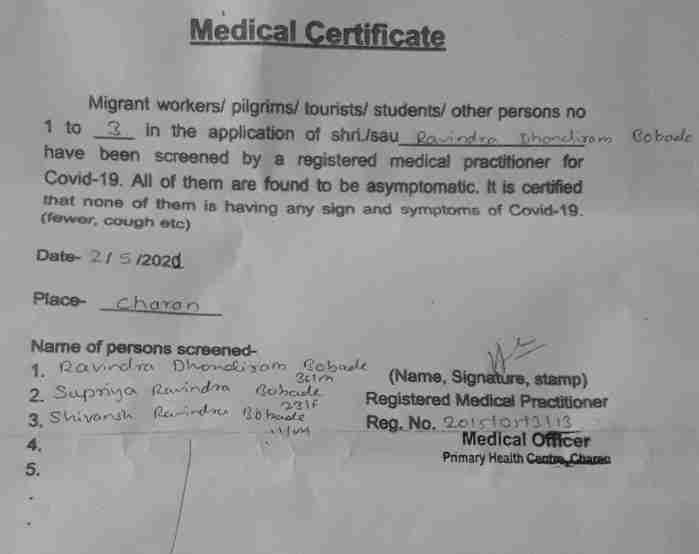 Medical Certificate
Migrant workers/ pilgrims/ tourists/ students/ other persons no
1 to 3 in the application of shri./sau Ravindra Dhondiram Bobade
have been screened by a registered medical practitioner for
Covid-19. All of them are found to be asymptomatic. It is certified
that none of them is having any sign and symptoms of Covid-19.
(fewer, cough etc)
Date- 2/5/2020
Place- Charan
Name of persons screened-
1. Ravindra Dhondiram Bobade
2. Supriya Ravindra Bobade
23/F
3. Shivansh Ravindra Bobade
4.
5.
(Name, Signature, stamp)
Registered Medical Practitioner
Reg. No.
Medical Officer
Primary Health Centre, Charan